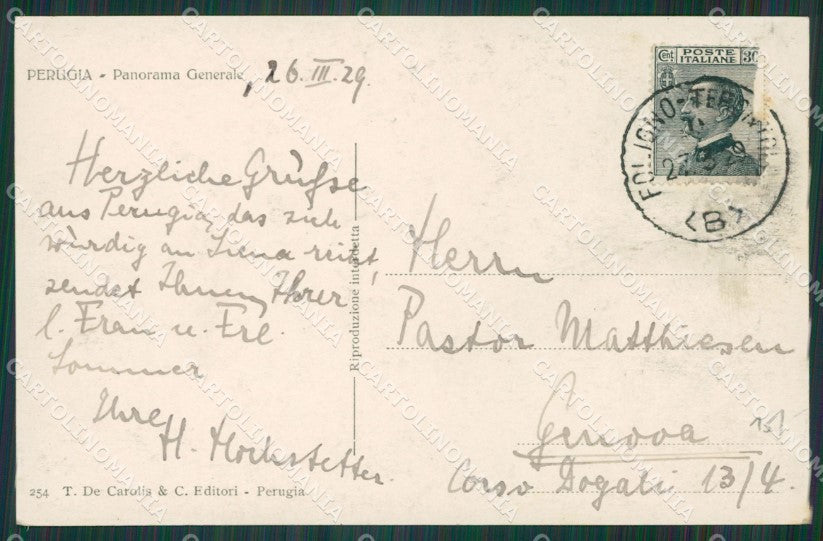 PERUGIA - Panorama Generale, 26.III.29.
Herzliche Grüße
aus Perugia, das sich
würdig an Siena reiht,
sendet Ihnen, Ihrer
l. Frau u. Frl.
Sommer
Ihre
H. Hochstetter.
254 T. De Carolis & C. Editori - Perugia
Riproduzione interdetta
Cent 30
POSTE
ITALIANE
FOLIGNO-TERONTOLA
27
<B>
Herrn
Pastor Matthiesen
Genova
Corso Dogali 13/4.
CARTOLINOMANIA